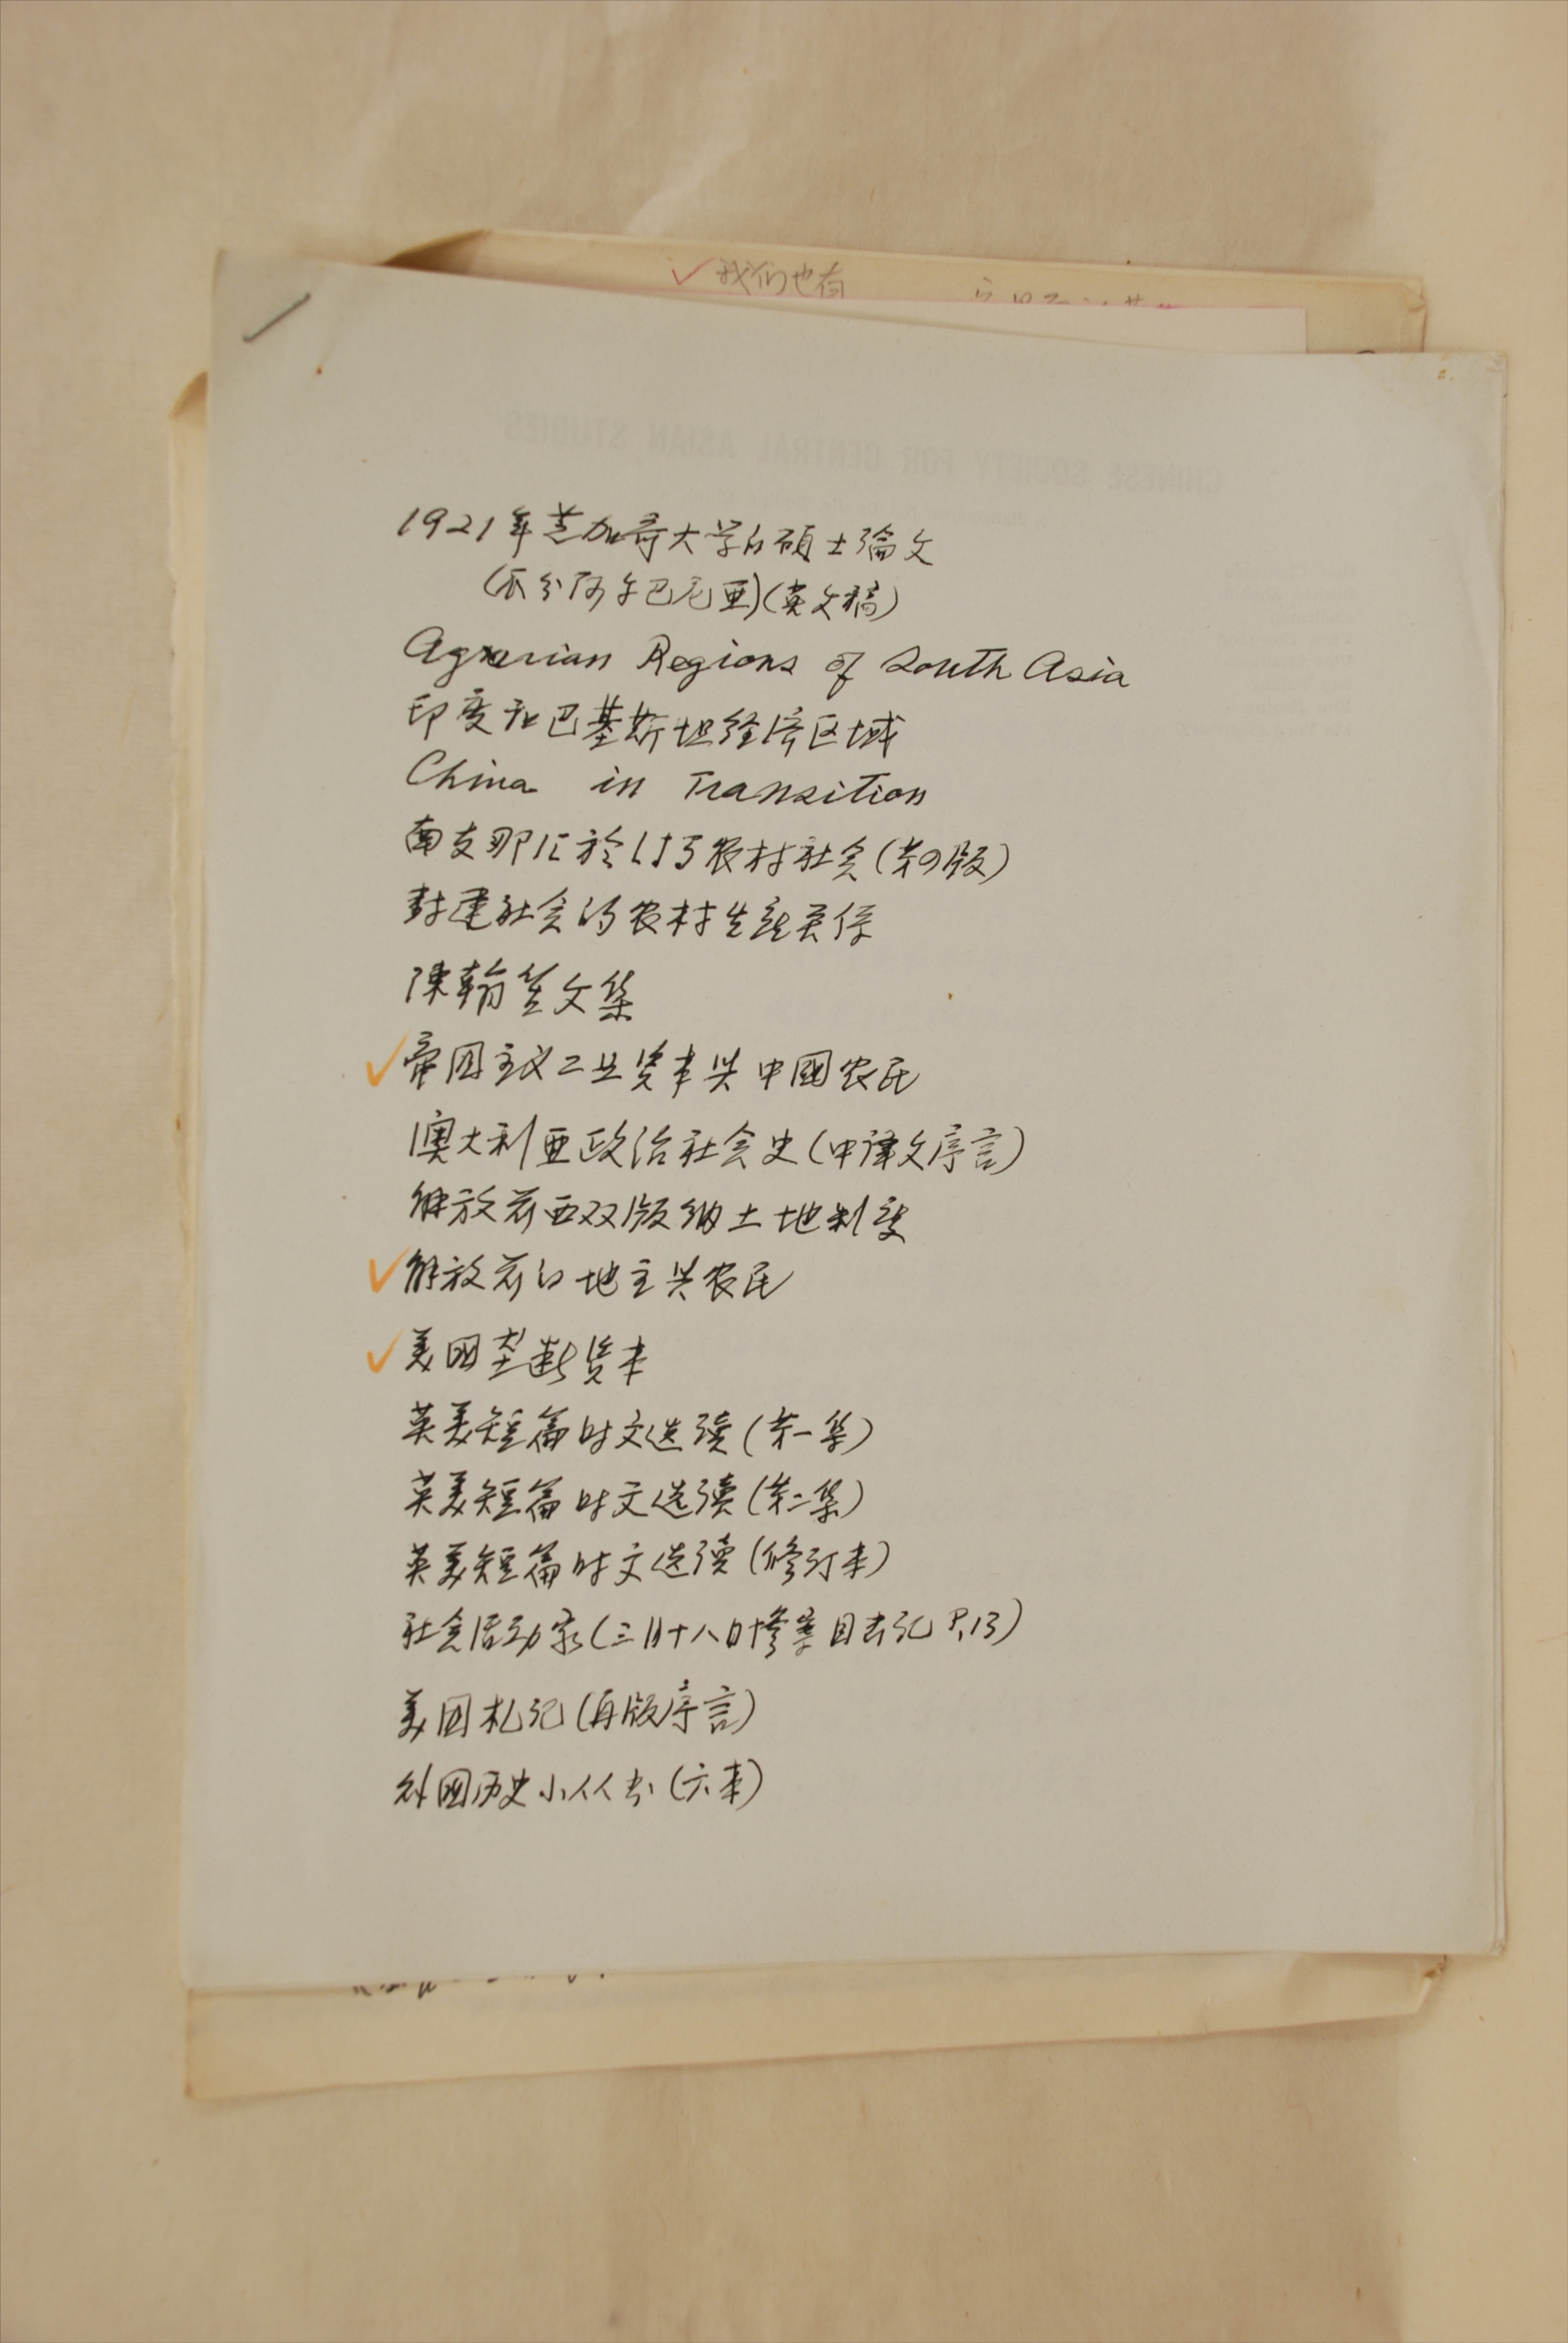 ✓我们也有
CHINESE SOCIETY FOR CENTRAL ASIAN STUDIES
1921年芝加哥大学的碩士論文
(瓜分阿尔巴尼亚)(英文稿)
Agrarian Regions of South Asia
印度和巴基斯坦经济区域
China in Transition
南支那に於ける农村社会(第9版)
封建社会的农村生产关係
陳翰笙文集
✓帝国主义工业资本与中國农民
澳大利亚政治社会史(中譯文序言)
解放前西双版纳土地制度
✓解放前的地主与农民
✓美國垄断资本
英美短篇时文选读(第一集)
英美短篇时文选读(第二集)
英美短篇时文选读(修订本)
社会活动家(三月十八日惨案目击记 P.13)
美国札记(再版序言)
外國历史小丛书(六本)